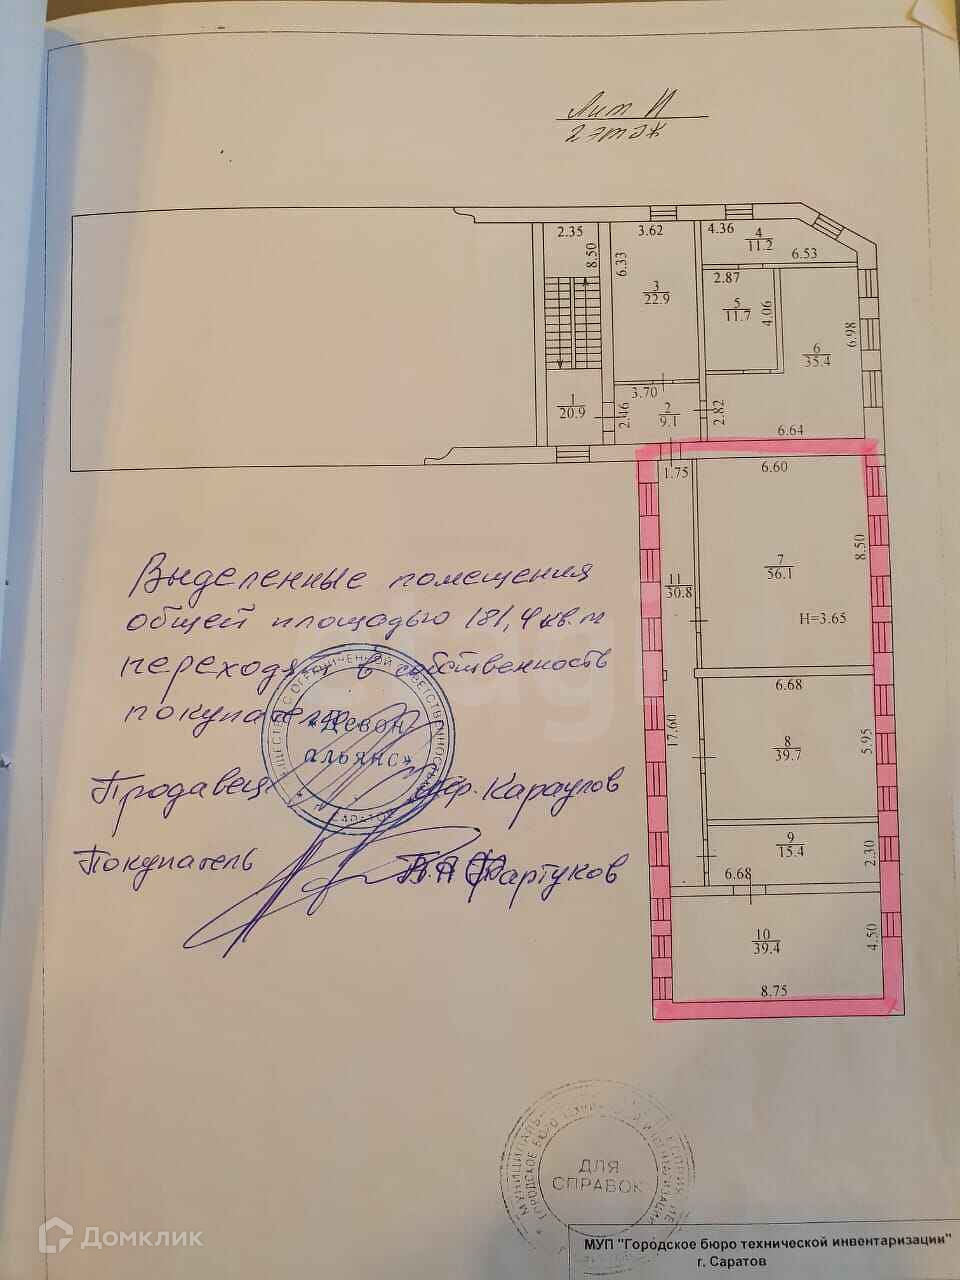 Лит И
2 этаж
2.35
3.62
4.36
4
11.2
6.53
8.50
6.33
3
22.9
2.87
5
11.7
4.06
6
35.4
6.98
1
20.9
3.70
2.46
2
9.1
2.82
6.64
1.75
6.60
7
56.1
8.50
H=3.65
11
30.8
6.68
17.60
8
39.7
5.95
9
15.4
2.30
6.68
10
39.4
4.50
8.75
Выделенные помещения
общей площадью 181,4 кв.м
переходят в собственность
покупателю
«Девон
альянс»
Продавец Караулов
Покупатель Фартуков
ДЛЯ
СПРАВОК
МУП "Городское бюро технической инвентаризации"
г. Саратов
Домклик